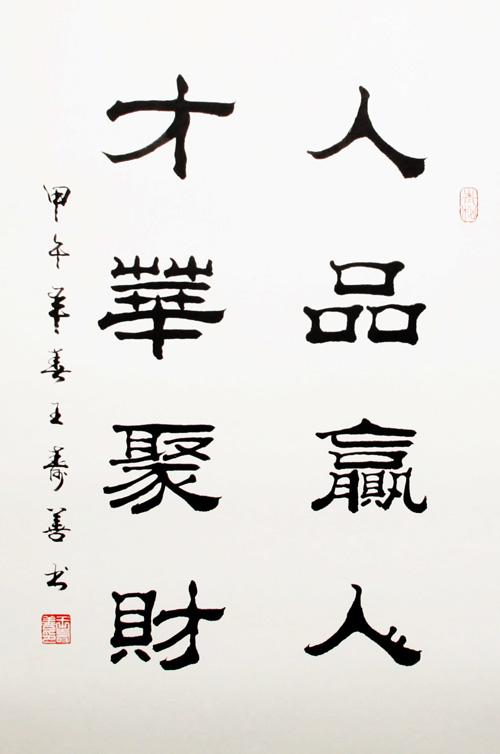 人品贏人
才華聚財
甲午年春王寿善书